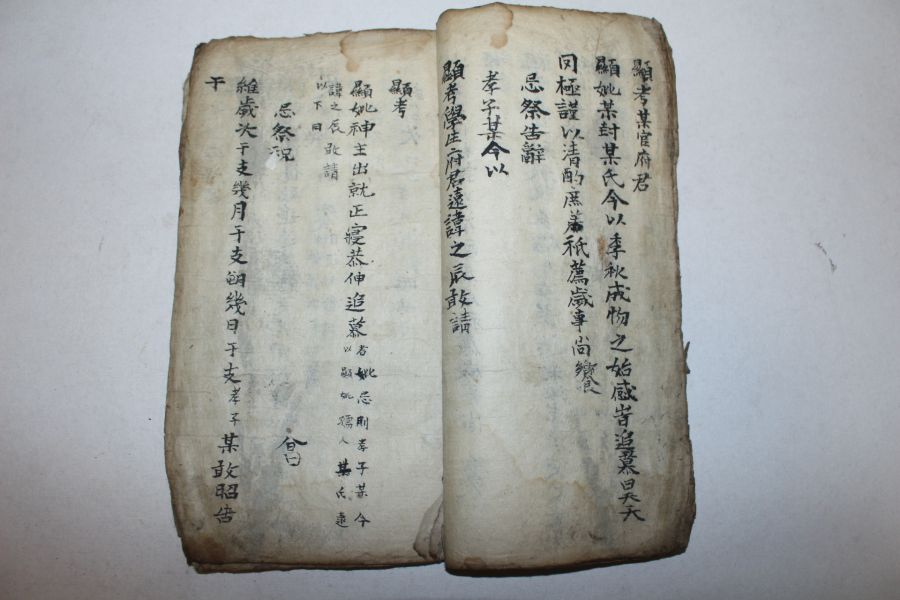 顯考某官府君
顯妣某封某氏今以季秋成物之始感旹追慕昊天
罔極謹以清酌庶羞祗薦歲事尙饗
忌祭告辭
孝子某今以
顯考學生府君遠諱之辰敢請
顯考
顯妣神主出就正寢恭伸追慕
者妣忌則孝子某今
以顯妣孺人某氏遠
諱之辰敢請
以下同
忌祭祝
維歲次干支幾月干支朔幾日干支孝子某敢昭告
于